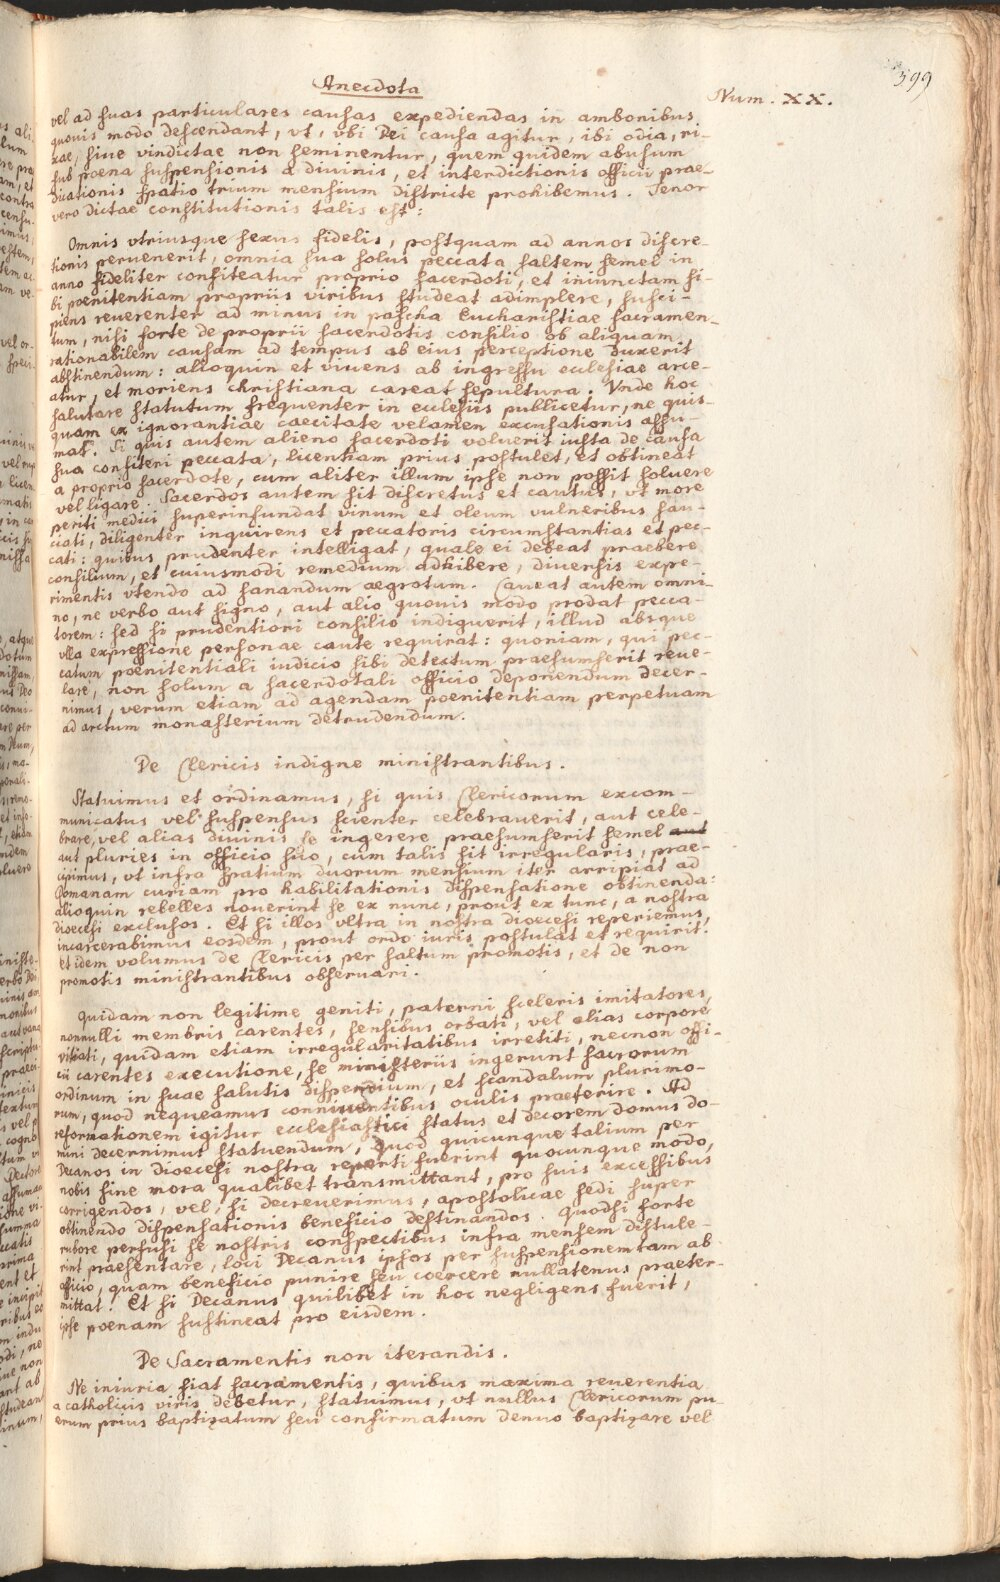 399
Anecdota
Num. XX.
vel ad suas particulares causas expediendas in ambonibus
quouis modo descendant, vt, vbi Dei causa agitur, ibi odia, ri-
xae, siue vindictae non seminentur, quem quidem abusum
sub poena suspensionis a diuinis, et interdictionis officii prae-
dicationis spatio trium mensium districte prohibemus. Tenor
vero dictae constitutionis talis est:
Omnis vtriusque sexus fidelis, postquam ad annos discre-
tionis peruenerit, omnia sua solus peccata saltem semel in
anno fideliter confiteatur proprio sacerdoti, et iniunctam si-
bi poenitentiam propriis viribus studeat adimplere, susci-
piens reuerenter ad minus in pascha Eucharistiae sacramen-
tum, nisi forte de proprii sacerdotis consilio ob aliquam
rationabilem causam ad tempus ab eius perceptione duxerit
abstinendum: alioquin et viuens ab ingressu ecclesiae arce-
atur, et moriens christiana careat sepultura. Vnde hoc
salutare statutum frequenter in ecclesiis publicetur, ne quis-
quam ex ignorantiae caecitate velamen excusationis assu-
mat. Si quis autem alieno sacerdoti voluerit iusta de causa
sua confiteri peccata, licentiam prius postulet, et obtineat
a proprio sacerdote, cum aliter illum ipse non possit soluere
vel ligare. Sacerdos autem sit discretus et cautus, vt more
periti medici superinfundat vinum et oleum vulneribus sau-
ciati, diligenter inquirens et peccatoris circumstantias et pec-
cati: quibus prudenter intelligat, quale ei debeat praebere
consilium, et cuiusmodi remedium adhibere, diuersis expe-
rimentis vtendo ad sanandum aegrotum. Caueat autem omni-
no, ne verbo aut signo, aut alio quouis modo prodat pecca-
torem: sed si prudentiori consilio indiguerit, illud absque
vlla expressione personae caute requirat: quoniam, qui pec-
catum poenitentiali iudicio sibi detectum praesumserit reue-
lare, non solum a sacerdotali officio deponendum decer-
nimus, verum etiam ad agendam poenitentiam perpetuam
ad arctum monasterium detrudendum.
De Clericis indigne ministrantibus.
Statuimus et ordinamus, si quis Clericorum excom-
municatus vel suspensus scienter celebrauerit, aut cele-
brare, vel alias diuinis se ingerere praesumserit semel aut
aut pluries in officio suo, cum talis sit irregularis, prae-
cipimus, vt infra spatium duorum mensium iter arripiat ad
Romanam curiam pro habilitationis dispensatione obtinenda:
alioquin rebelles nouerint se ex nunc, prout ex tunc, a nostra
dioecesi exclusos. Et si illos vltra in nostra dioecesi reperiemus,
incarcerabimus eosdem, prout ordo iuris postulat et requirit.
Et idem volumus de Clericis per saltum promotis, et de non
promotis ministrantibus obseruari.
Quidam non legitime geniti, paterni sceleris imitatores,
nonnulli membris carentes, sensibus orbati, vel alias corpore
vitiati, quidam etiam irregularitatibus irretiti, necnon offi-
cii carentes executione, se ministeriis ingerunt sacrorum
ordinum in suae salutis dispendium, et scandalum plurimo-
rum, quod nequeamus conniuentibus oculis praeterire. Ad
reformationem igitur ecclesiastici status et decorem domus do-
mini decernimus statuendum, Quod quicunque talium per
Decanos in dioecesi nostra reperti fuerint quocunque modo,
nobis sine mora qualibet transmittant, pro suis excessibus
corrigendos, vel, si decreuerimus, apostolicae sedi super
obtinendo dispensationis beneficio destinandos. Quodsi forte
rubore perfusi se nostris conspectibus infra mensem distule-
rint praesentare, loci Decanus ipsos per suspensionem tam ab
officio, quam beneficio punire seu coercere nullatenus praeter-
mittat. Et si Decanus quilibet in hoc negligens fuerit,
ipse poenam sustineat pro eisdem.
De Sacramentis non iterandis.
Ne iniuria fiat sacramentis, quibus maxima reuerentia
a catholicis viris debetur, statuimus, vt nullus Clericorum pu-
erum prius baptizatum seu confirmatum denuo baptizare vel